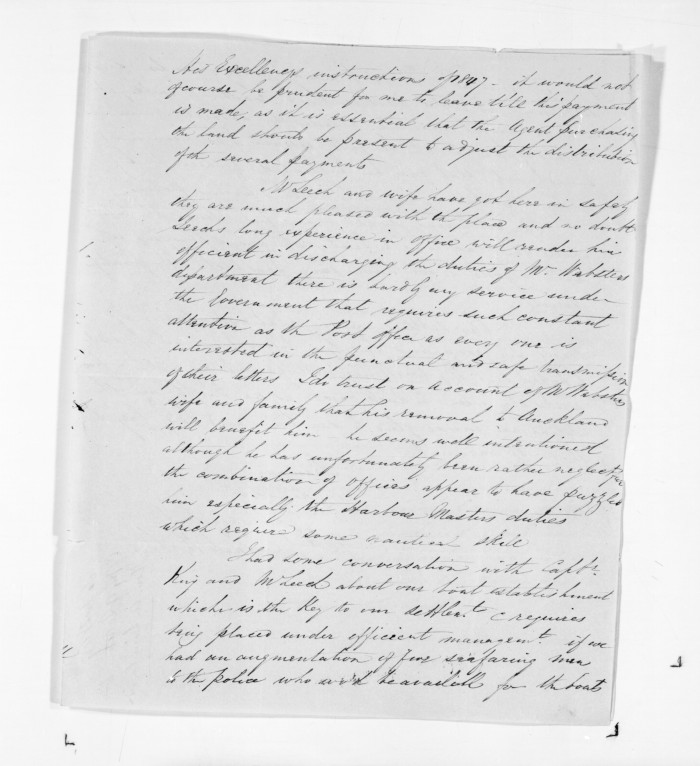 His Excellencys instructions of 1847 - it would not
of course be prudent for me to leave till this payment
is made, as it is essential that the Agent purchasing
the land should be present to adjust the distribution
of the several payments
Mr Leech and wife have got here in safety
they are much pleased with the place and no doubt
Leech's long experience in office will render him
efficient in discharging the duties of Mr Websters
department there is hardly any service under
the Government that requires such constant
attention as the Post Office as every one is
interested in the punctual and safe transmission
of their letters I do trust on account of Mr Websters
wife and family that his removal to Auckland
will benefit him he seems well intentioned
although he has unfortunately been rather neglectful
the combination of offices appear to have puzzled
him especially the Harbour Masters duties
which require some nautical skill
I had some conversation with Captn
King and Mr Leech about our boat establishment
which is the Key to our settlemt & requires
being placed under efficient managemt. if we
had an augmentation of four seafaring men
to the Police who wd be availible for the boats